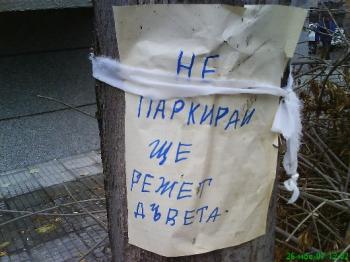 НЕ
ПАРКИРАЙ
ЩЕ
РЕЖЕТ
ДЪВЕТА